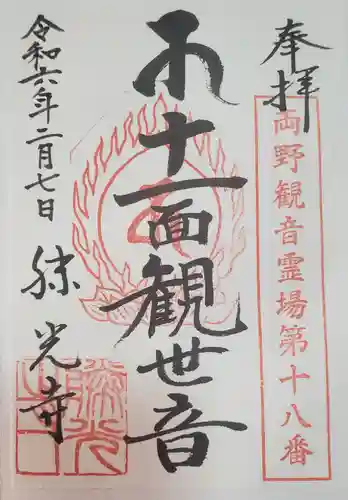 奉拝
両野観音霊場第十八番
十一面観世音
令和六年二月七日
勝光寺